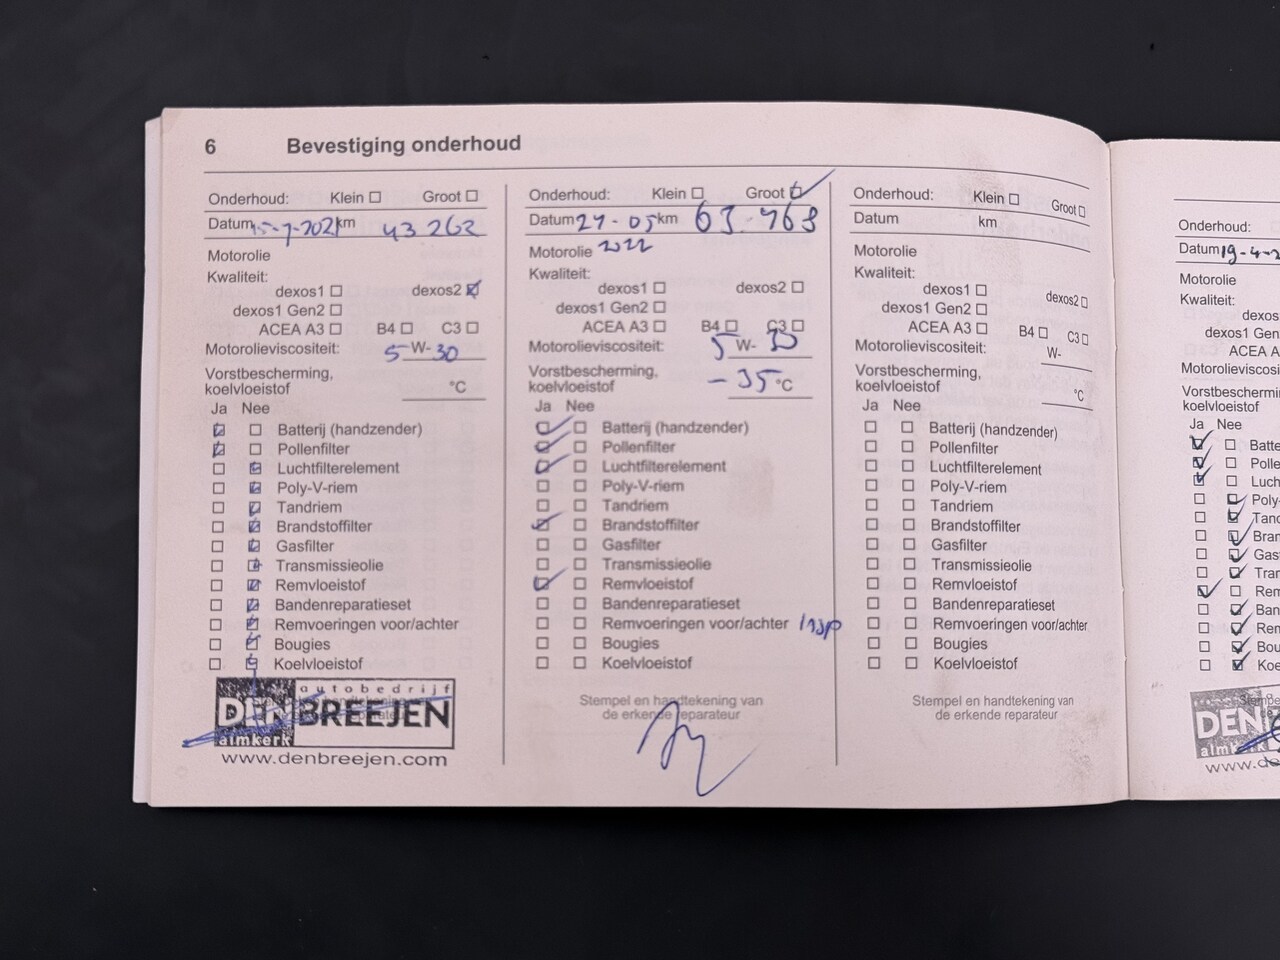 6 Bevestiging onderhoud
Onderhoud: Klein ☐ Groot ☐
Datum 15-7-2021 km 43 262
Motorolie
Kwaliteit:
dexos1 ☐ dexos2 ☑
dexos1 Gen2 ☐
ACEA A3 ☐ B4 ☐ C3 ☐
Motorolieviscositeit: 5 W- 30
Vorstbescherming,
koelvloeistof °C
Ja Nee
☑ ☐ Batterij (handzender)
☑ ☐ Pollenfilter
☐ ☑ Luchtfilterelement
☐ ☑ Poly-V-riem
☐ ☑ Tandriem
☐ ☑ Brandstoffilter
☐ ☑ Gasfilter
☐ ☑ Transmissieolie
☐ ☑ Remvloeistof
☐ ☑ Bandenreparatieset
☐ ☑ Remvoeringen voor/achter
☐ ☑ Bougies
☐ ☑ Koelvloeistof
autobedrijf
DEN BREEJEN
almkerk
www.denbreejen.com
Onderhoud: Klein ☐ Groot ☑
Datum 27-05 km 63.768
Motorolie 2022
Kwaliteit:
dexos1 ☐ dexos2 ☐
dexos1 Gen2 ☐
ACEA A3 ☐ B4 ☐ C3 ☐
Motorolieviscositeit: 5 W- 30
Vorstbescherming,
koelvloeistof -35 °C
Ja Nee
☑ ☐ Batterij (handzender)
☑ ☐ Pollenfilter
☑ ☐ Luchtfilterelement
☐ ☐ Poly-V-riem
☐ ☐ Tandriem
☑ ☐ Brandstoffilter
☐ ☐ Gasfilter
☐ ☐ Transmissieolie
☑ ☐ Remvloeistof
☐ ☐ Bandenreparatieset
☐ ☐ Remvoeringen voor/achter insp
☐ ☐ Bougies
☐ ☐ Koelvloeistof
Stempel en handtekening van
de erkende reparateur
Onderhoud: Klein ☐ Groot ☐
Datum km
Motorolie
Kwaliteit:
dexos1 ☐ dexos2 ☐
dexos1 Gen2 ☐
ACEA A3 ☐ B4 ☐ C3 ☐
Motorolieviscositeit: W-
Vorstbescherming,
koelvloeistof °C
Ja Nee
☐ ☐ Batterij (handzender)
☐ ☐ Pollenfilter
☐ ☐ Luchtfilterelement
☐ ☐ Poly-V-riem
☐ ☐ Tandriem
☐ ☐ Brandstoffilter
☐ ☐ Gasfilter
☐ ☐ Transmissieolie
☐ ☐ Remvloeistof
☐ ☐ Bandenreparatieset
☐ ☐ Remvoeringen voor/achter
☐ ☐ Bougies
☐ ☐ Koelvloeistof
Stempel en handtekening van
de erkende reparateur
Onderhoud:
Datum 19-4-2
Motorolie
Kwaliteit:
dexos
dexos1 Gen
ACEA A
Motorolieviscosi
Vorstbescherming
koelvloeistof
Ja Nee
☑ ☐ Batte
☑ ☐ Polle
☑ ☐ Luch
☐ ☑ Poly-
☐ ☑ Tand
☐ ☑ Bran
☐ ☑ Gas
☐ ☑ Tran
☑ ☐ Rem
☐ ☑ Ban
☐ ☑ Rem
☐ ☑ Bou
☐ ☑ Koe
DEN
almkerk
www.de